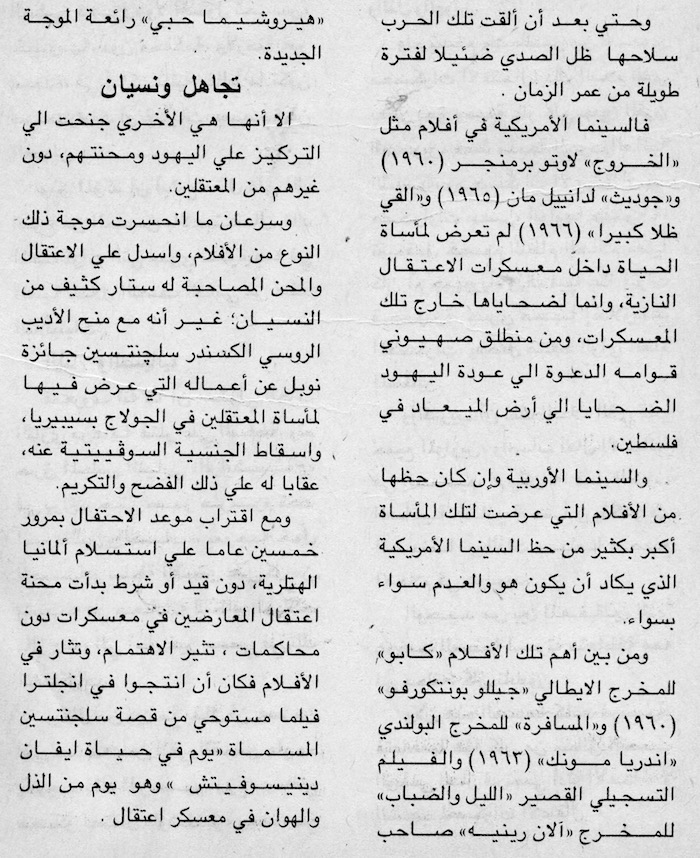 وحتي بعد أن ألقت تلك الحرب
سلاحها ظل الصدي ضئيلا لفترة
طويلة من عمر الزمان .
فالسينما الأمريكية في أفلام مثل
«الخروج» لاوتو برمنجر (١٩٦٠)
و«جوديث» لدانييل مان (١٩٦٥) و«القي
ظلا كبيرا» (١٩٦٦) لم تعرض لمأساة
الحياة داخل معسكرات الاعتقال
النازية، وانما لضحاباها خارج تلك
المعسكرات، ومن منطلق صهيوني
قوامه الدعوة الي عودة اليهود
الضحايا الي أرض الميعاد في
فلسطين.
والسينما الأوربية وإن كان حظها
من الأفلام التي عرضت لتلك المأساة
أكبر بكثير من حظ السينما الأمريكية
الذي يكاد أن يكون هو والعدم سواء
بسواء.
ومن بين أهم تلك الأفلام «كابو»
للمخرج الايطالي «جيللو بونتكورفو»
(١٩٦٠) و«المسافرة» للمخرج البولندي
«اندريا مونك» (١٩٦٣) والفيلم
التسجيلي القصير «الليل والضباب»
للمخرج «ألان رينيه» صاحب
«هيروشيما حبي» رائعة الموجة
الجديدة.
تجاهل ونسيان
الا أنها هي الأخري جنحت الي
التركيز علي اليهود ومحنتهم، دون
غيرهم من المعتقلين.
وسرعان ما انحسرت موجة ذلك
النوع من الأفلام، واسدل علي الاعتقال
والمحن المصاحبة له ستار كثيف من
النسيان؛ غير أنه مع منح الأديب
الروسي الكسندر سلچنتسين جائزة
نوبل عن أعماله التي عرض فيها
لمأساة المعتقلين في الجولاج بسيبيريا،
واسقاط الجنسية السوڤييتية عنه،
عقابا له علي ذلك الفضح والتكريم.
ومع اقتراب موعد الاحتفال بمرور
خمسين عاما علي استسلام ألمانيا
الهتلرية، دون قيد أو شرط بدأت محنة
اعتقال المعارضين في معسكرات دون
محاكمات ، تثير الاهتمام، وتثار في
الأفلام فكان أن انتجوا في انجلترا
فيلما مستوحي من قصة سلجنتسين
المسماة «يوم في حياة ايفان
دينيسوفيتش » وهو يوم من الذل
والهوان في معسكر اعتقال .